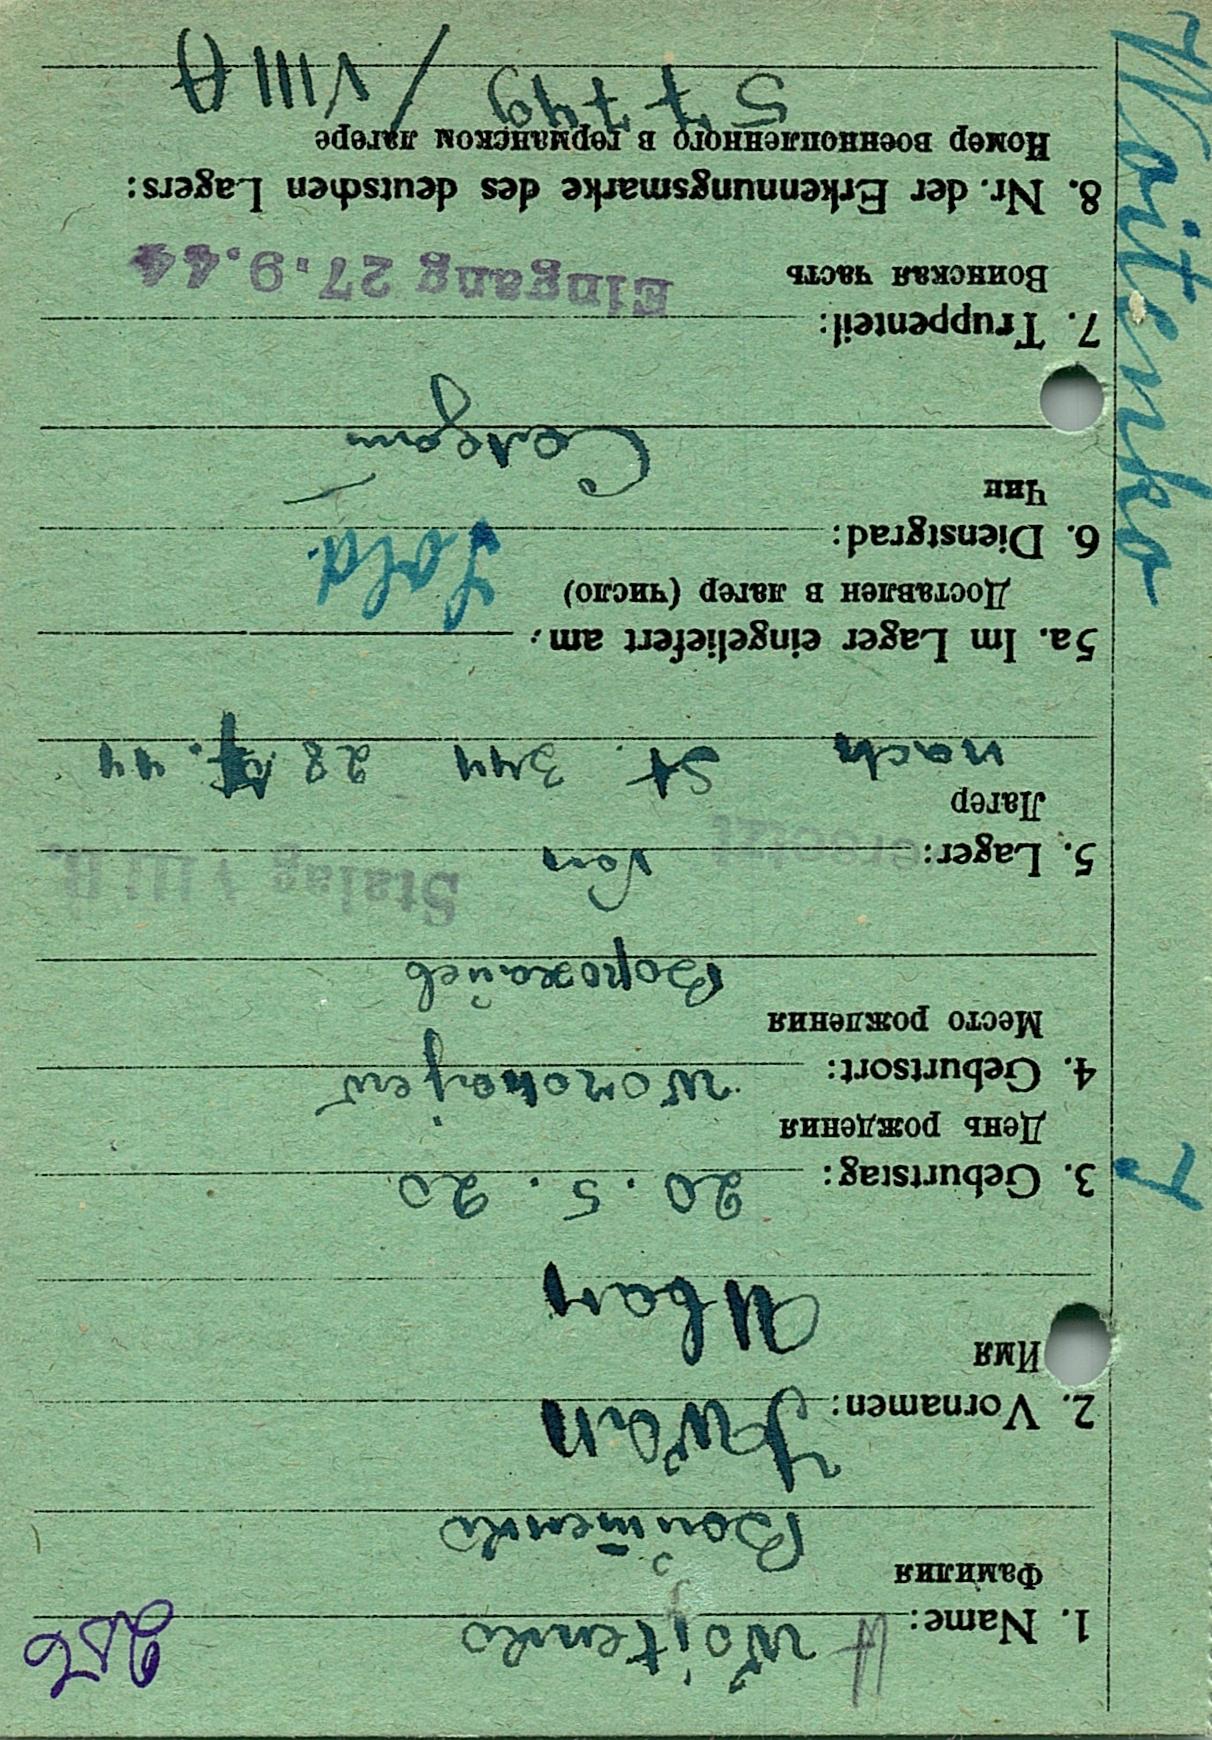 256
1. Name: Woitenko
Фамилия
Войтенко
2. Vornamen: Iwan
Имя
Иван
3. Geburtstag: 20. 5. 20
День рождения
4. Geburtsort:
Место рождения
5. Lager: von Stalag
Лагер
nach St. 344 28. 44
5a. Im Lager eingeliefert am:
Доставлен в лагер (число)
6. Dienstgrad: Sold.
Чин
7. Truppenteil:
Воинская часть
Eingang 27.9.44
8. Nr. der Erkennungsmarke des deutschen Lagers:
Номер военнопленного в германском лагере
57749 / VIII A
Woitenko J